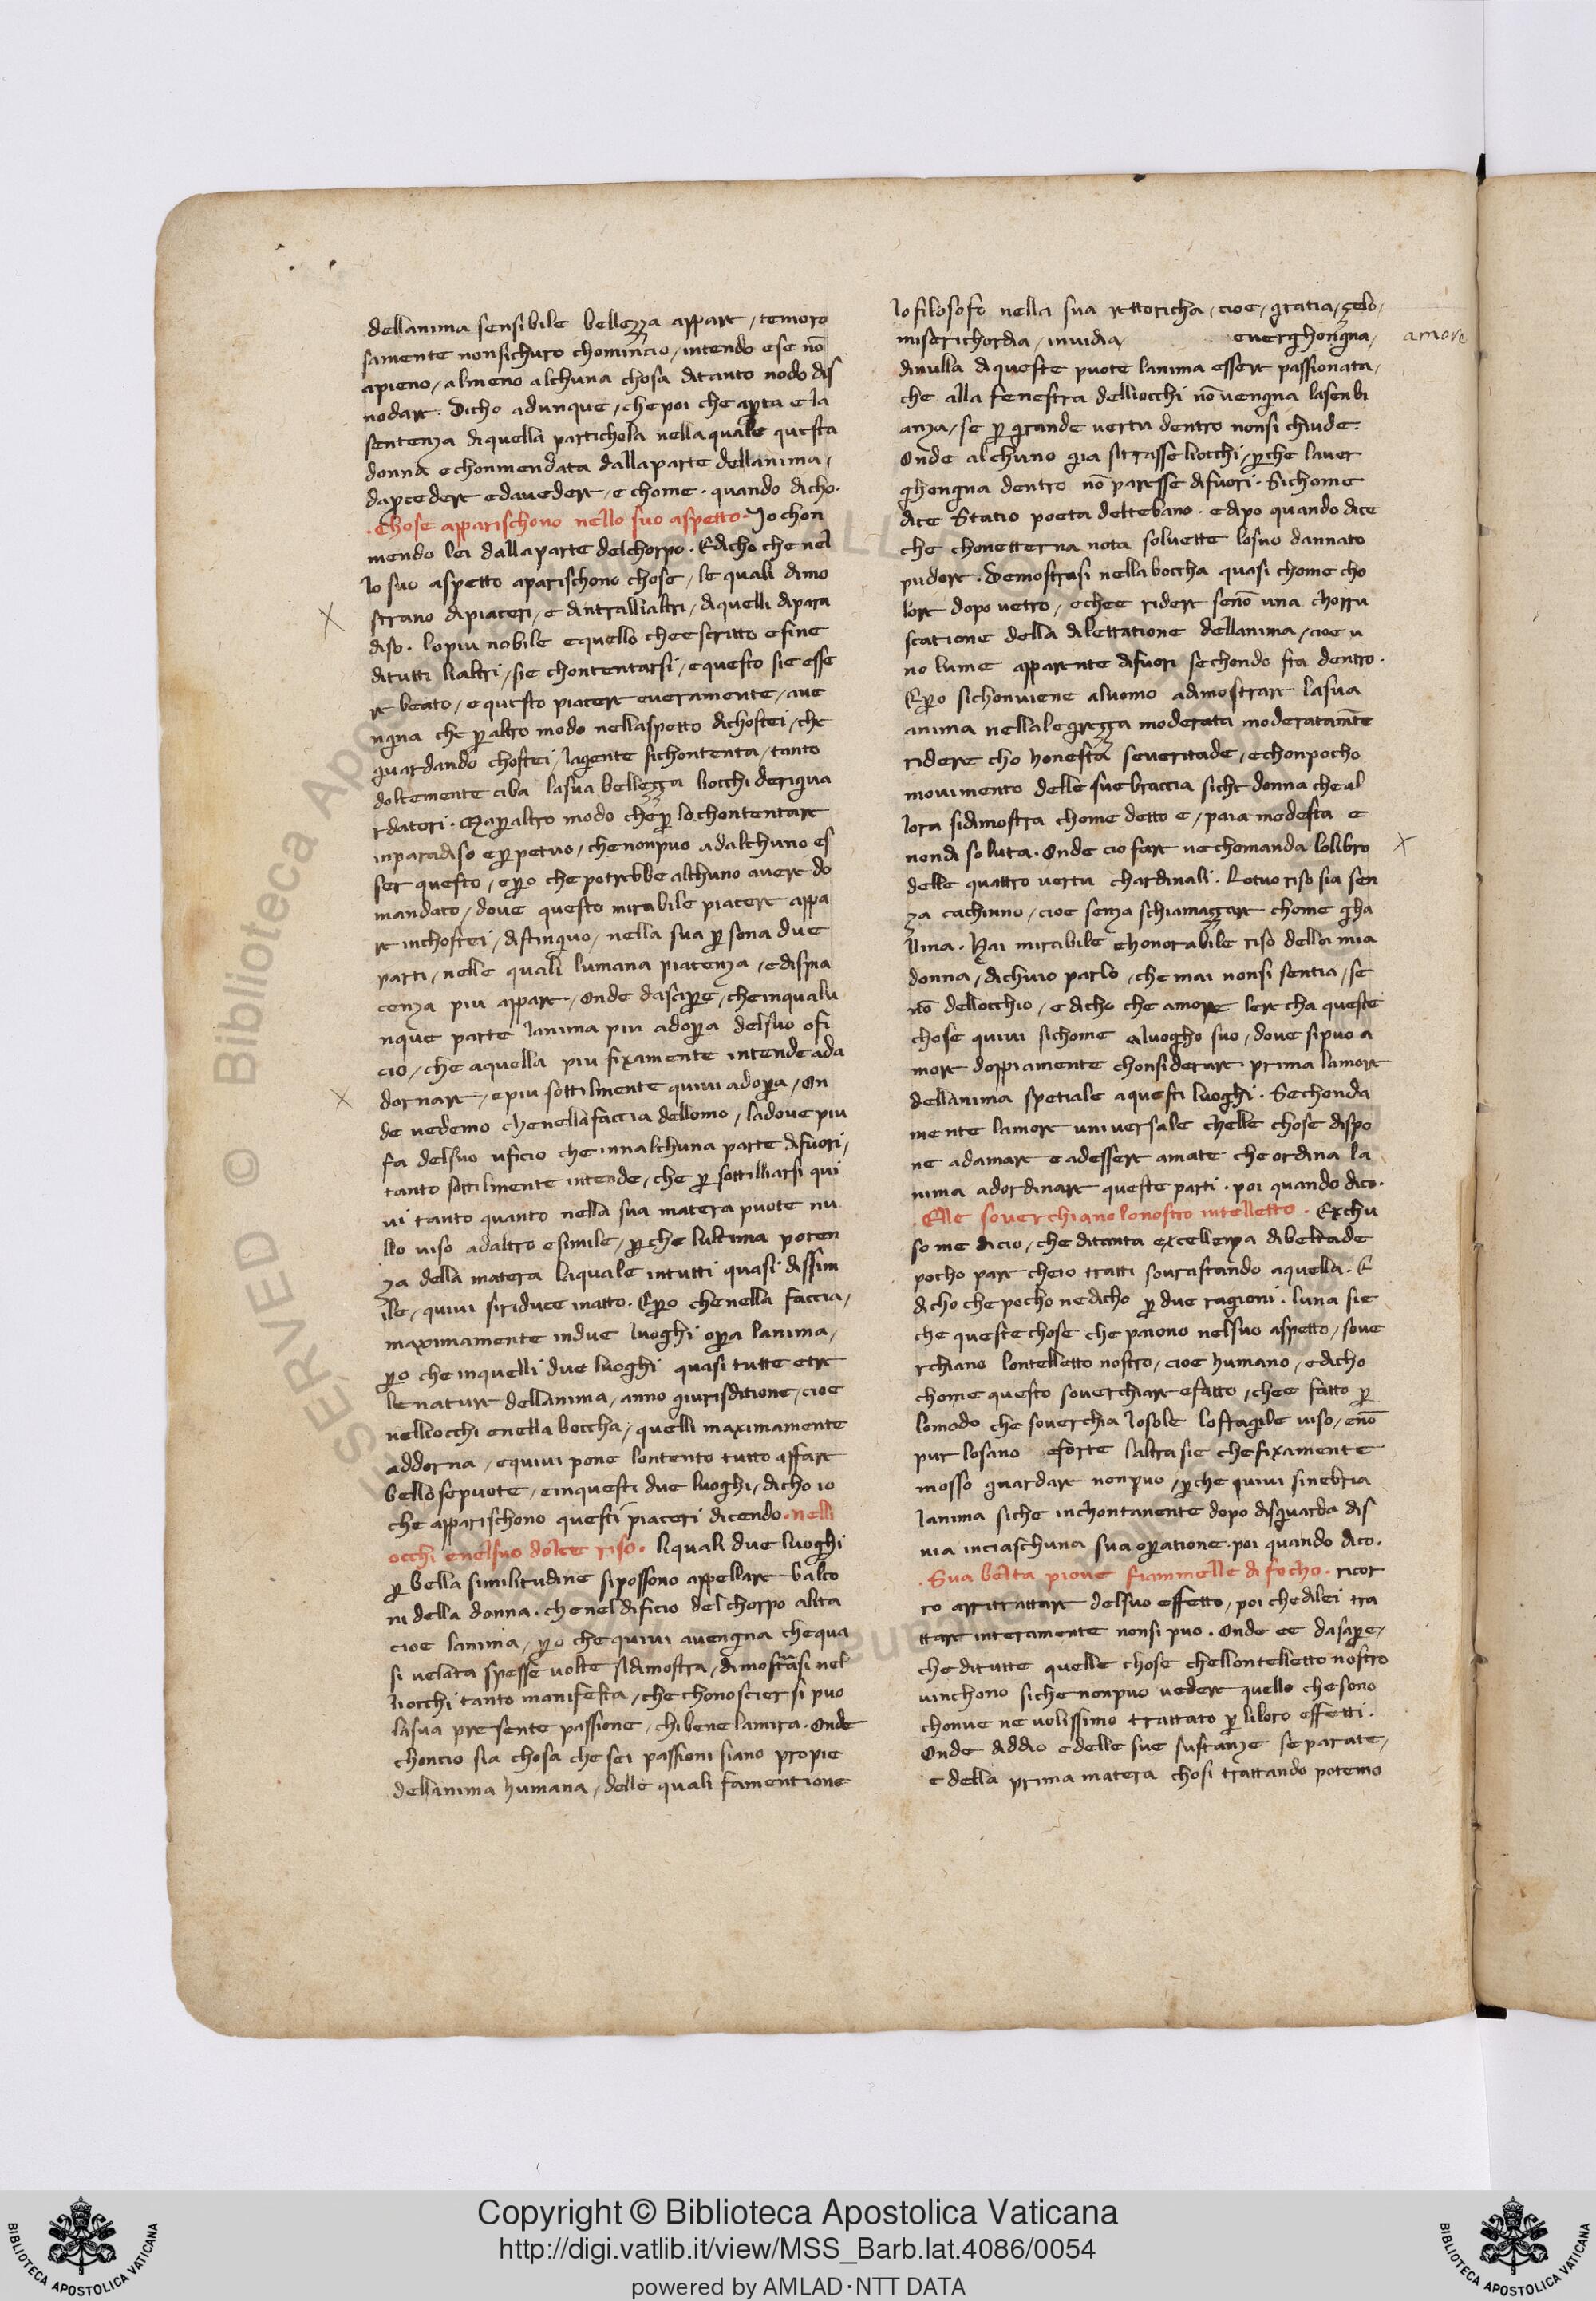 dellanima sensibile bellezza appare / temoro
samente nonsichuro chomincio / intendo ese nō
apieno / almeno alchuna chosa ditanto nodo dis
nodare. Dicho adunque / che poi che aꝑta e la
sentenza di quella partichola nellaquale questa
donna e chonmendata dallaparte dellanima /
daꝓcedere edavedere / e chome . quando dicho.
. Chose apparischono nello suo aspetto. Jo chon
mendo lei dallaparte delchorpo. Edicho che nel
lo suo aspetto aparischono chose / le quali dimo
strano dipiaceri / e dintrallialtri / diquelli dipara
diso . lopiu nobile equello cheescritto efine
ditutti lialtri / sie chontentarsi / equesto sie esse
re beato / equesto piacere everamente / ave
ngna che ꝑaltro modo nellaspetto dichostei / che
guardando chostei / lagente sichontenta / tanto
dolcemente ciba lasua bellezza liocchi deriguа
rdatori. Maꝑaltro modo cheꝑ lo chontentare
inparadiso eꝑpetuo / che nonpuo adalchuno es
ser questo / eꝑo che potrebbe alchuno avere do
mandato / dove questo mirabile piacere appa
re inchostei / distinguo / nella sua ꝑsona due
parti / nelle quali lumana piacenza / edispia
cenza piu appare / Onde dasaꝑe / cheinqualu
nque parte lanima piu adoꝑa delsuo ofi
cio / che aquella piu fixamente intende ada
dornare / epiu sottilmente quivi adoꝑa / On
de vedemo chenellafaccia dellomo / ladove piu
fa delsuo uficio che innalchuna parte difuori /
tanto sottilmente intende / che ꝑ sottilliarsi qui
vi tanto quanto nella sua matera puote nu
llo viso adaltro esimile / ꝑche lultima poten
za della matera laquale intutti quasi dissim
ile / quivi siriduce inatto. Eꝑo chenella faccia /
maximamente indue luoghi oꝑa lanima /
ꝑo che inquelli due luoghi quasi tutte etre
lenature dellanima / anno giurisditione / cioe
nelliocchi enella boccha / quelli maximamente
addorna / equivi pone lontento tutto affare
bello sepuote / einquesti due luoghi / dicho io
che apparischono questi piaceri dicendo . nelli
occhi enelsuo dolce riso. liquali due luoghi
ꝑ bella similitudine sipossono appellare balco
ni della donna. chenel dificio del chorpo alita
cioe lanima / ꝑo che quivi avengna chequa
si velata spesse volte sidimostra / dimostrasi nel
liocchi tanto manifesta / che chonoscier si puo
lasua presente passione / chibene lamira. Onde
choncio sia chosa che sei passioni siano propie
dellanima humana / delle quali famentione
lofilosofo nella sua rettoricha / cioe / gratia / zelo /
miserichordia / invidia / everghongna /
amore
dinulla diqueste puote lanima essere passionata /
che alla fenestra delliocchi nō vengna lasenbi
anza / se ꝑ grande vertu dentro nonsi chiude.
Onde alchuno gia sitrasse liocchi / ꝑche laver
ghongna dentro nō paresse difuori. Sichome
dice Statio poeta deltebano . edipo quando dice
che chonetterna nota solvette losuo dannato
pudore. Demostrasi nella boccha quasi chome cho
lore dopo vetro / echee ridere senō una chorru
scatione della dilettatione dellanima / cioe u
no lume apparente difuori sechondo sta dentro.
Eꝑo sichonviene aluomo adimostrare lasua
anima nellalegrezza moderata moderatamēte
ridere cho honesta severitade / echonpocho
movimento delle sue braccia siche donna che al
lora sidimostra chome detto e / paia modesta e
nondi soluta. Onde cio fare ne chomanda lolibro
delle quattro vertu chardinali. Lotuo riso sia sen
za cachinno / cioe senza schiamazzare chome gha
llina. Hai mirabile ehonorabile riso della mia
donna / dichuio parlo / che mai nonsi sentia / se
nō dellocchio / e dicho che amore lere cha queste
chose quivi sichome aluogho suo / dove sipuo a
more doppiamente chonsiderare prima lamore
dellanima spetiale aquesti luoghi. Sechonda
mente lamore universale chelle chose dispo
ne adamare e adessere amate che ordina la
nima adordinare queste parti . poi quando dico.
. Elle soverchiano lonostro intelletto . Exchu
some dicio / che ditanta excellenza dibeltade
pocho pare cheio tratti sovrastando aquella . E
dicho che pocho nedicho ꝑ due ragioni. luna sie
che queste chose che paiono nelsuo aspetto / sove
rchiano lontelletto nostro / cioe humano / edicho
chome questo soverchiare efatto / chee fatto ꝑ
lomodo che soverchia losole lofragile viso / enō
pur losano eforte laltra sie chefixamente
mosso guardare nonpuo / ꝑche quivi sinebria
lanima siche inchontanente dopo disguarda dis
via inciaschuna sua oꝑatione . poi quando dico.
. Sua belta piove fiammelle di focho . ricor
ro arritrattare delsuo effetto / poi chedilei tra
ttare interamente nonsi puo. Onde ee dasaꝑe /
che ditutte quelle chose chellontelletto nostro
vinchono siche nonpuo vedere quello che sono
chonve ne volissimo trattato ꝑ liloro effetti.
Onde diddio edelle sue sustanze separate /
e della prima matera chosi trattando potemo
Copyright © Biblioteca Apostolica Vaticana
http://digi.vatlib.it/view/MSS_Barb.lat.4086/0054
powered by AMLAD·NTT DATA
BIBLIOTECA APOSTOLICA VATICANA
BIBLIOTECA APOSTOLICA VATICANA